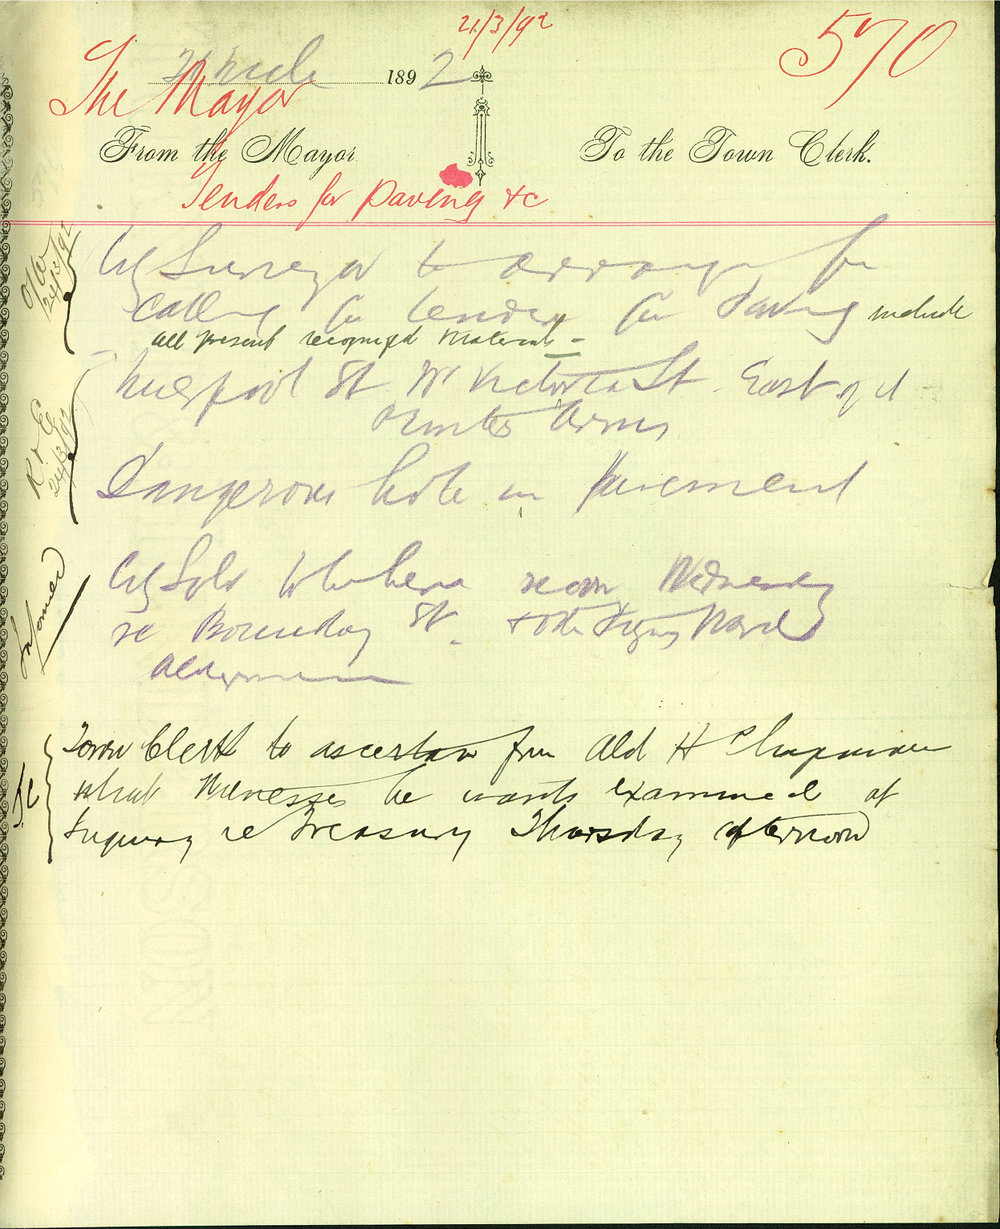 21/3/92
570
March 1892
The Mayor
From the Mayor To the Town Clerk.
Tenders for paving &c
City Surveyor to arrange for
calling for tenders for Paving include
all present recognized materials -
Liverpool St Nr Victoria St East of
Hunter Arms
Dangerous hole in Pavement
City Solr to be here noon Wednesday
re Boundary St & other Ward
Aldermen
Town Clerk to ascertain from Ald H Chapman
what Witnesses he wants examined at
Inquiry re Treasury Thursday afternoon
24/3/92
R & E
24/3/92
Informed
T.C.